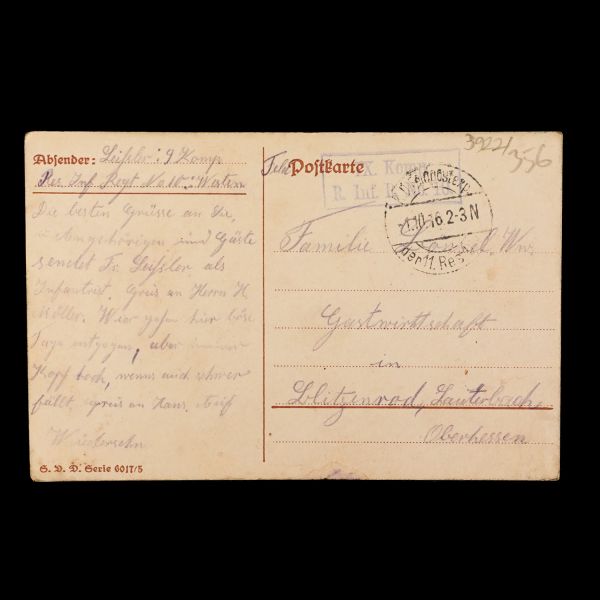 Absender: Leißler: 9 Komp
Res Inf. Regt No 10:
Die besten Grüsse an Sie,
u Angehörigen und Gäste
sendet Fr. Leißler als
Infantrist. Gruis an Herrn H.
Möller. Wier gehen hier böse
Tage entgegen, aber immer
Kopf hoch, wenns auch schwer
fällt. gruis an Hans. Auf
Wiedersehn
S. V. D. Serie 6017/5
Feld Postkarte
IX. Komp.
R. Inf. R.
3922/ 356
1.10.16.2-3N
der 11. Res.
Familie
Gastwirtschaft
in
Blitzenrod, Lauterbach,
Oberhessen